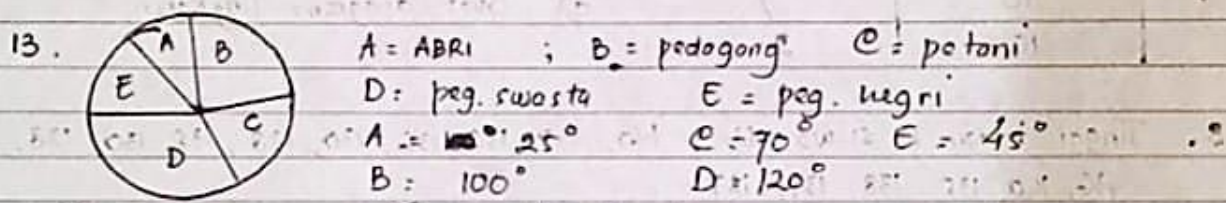 13. A B C D E A = ABRI ; B = pedagang C = petani
D = peg. swasta E = peg. negri
A = 25° C = 70° E = 45°
B = 100° D = 120°